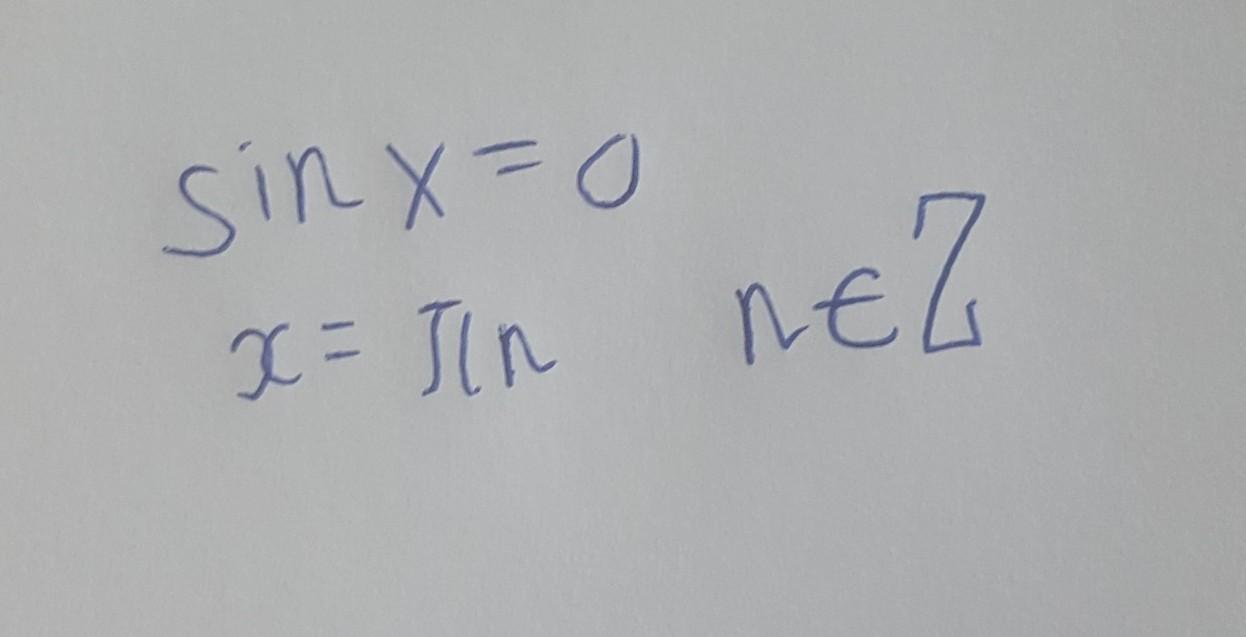 sin x = 0
x = πn n ∈ Z